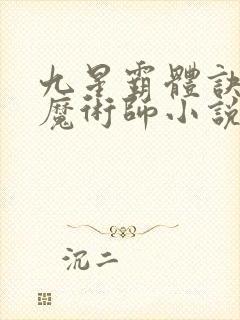 九星霸體訣
魔術師小說
沉二